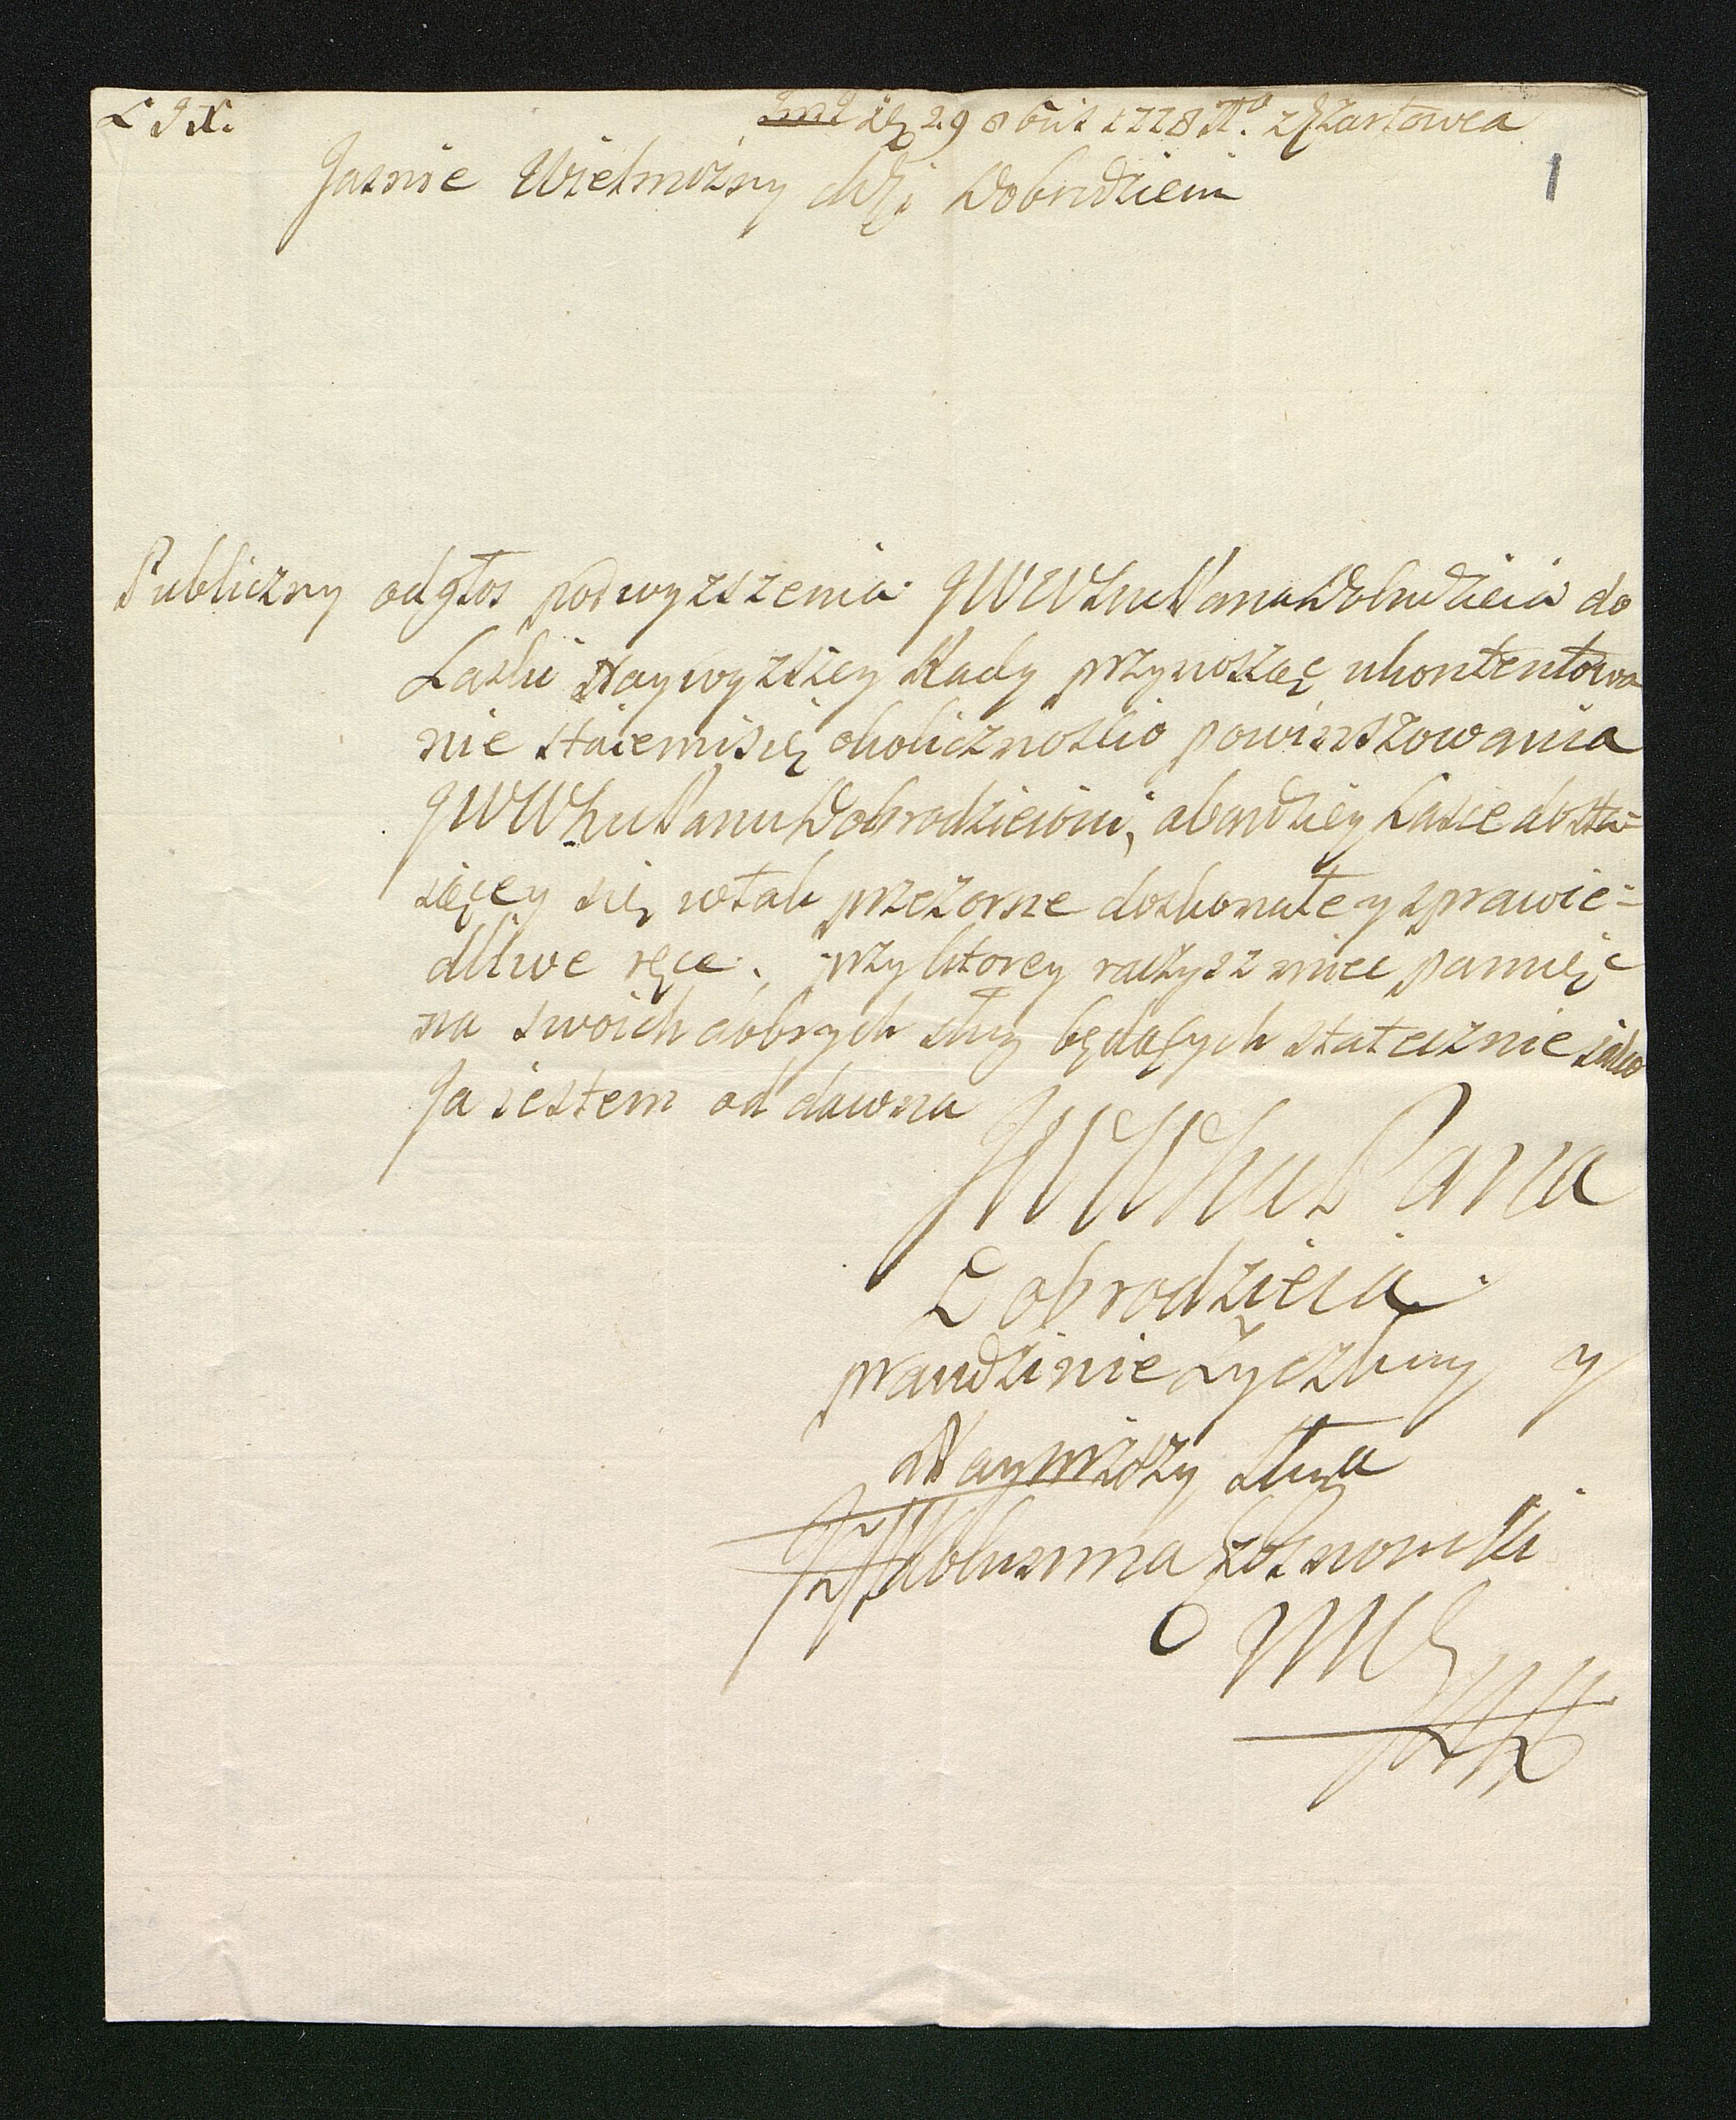 29 8bris 1778 Ro z Szartowca
1
Jasnie Wielmozny Mći Dobrodzieiu
Publiczny odgłos podwyzszenia JWW Pana Dobrodzieia do
Laski Naywyzszey Rady przynosząc ukontentowa
nie staiemisię okolicznoscio powinszowania
JWW Panu Dobrodzieiowi, abardziey Lasce dosta=
iącey się wtak przezorne doskonałe y sprawie=
dliwe ręce. przy ktorey raczysz miec pamięc
na swoich dobrych sług będących statecznie iako
Ja iestem od dawna
JWW Pana
Dobrodzieia
prawdziwie Zyczliwy y
Nayniższy sługa
Sosnowski